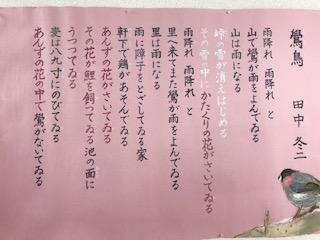 鷽鳥
田中冬二
雨降れ 雨降れ と
山で鷽が雨をよんでゐる
山は雨になる
峠の雪が消えはじめる
その雪の中にかたくりの花がさいてゐる
雨降れ 雨降れ と
里へ来てまた鷽が雨をよんでゐる
里は雨になる
雨に障子をとざしてゐる家
軒下で鶏があそんでゐる
あんずの花がさいてゐる
その花が鯉を飼つてゐる池の面に
うつつてゐる
麦は八九寸にのびてゐる
あんずの花の中で鷽がないてゐる